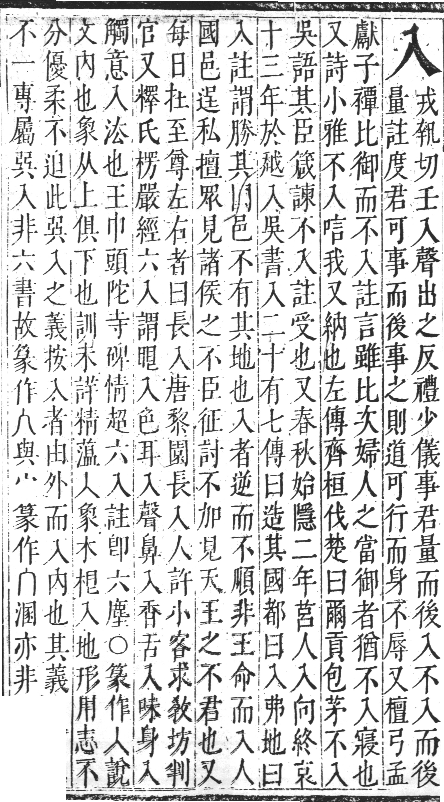 入 戎執切壬入聲出之反禮少儀事君量而後入不入而後
量註度君可事而後事之則道可行而身不辱又檀弓孟
獻子禫比御而不入註言雖比次婦人之當御者猶不入寢也
又詩小雅不入唁我又納也左傳齊桓伐楚曰爾貢包茅不入
吳語其臣箴諫不入註受也又春秋始隱二年莒人入向終哀
十三年於越入吳書入二十有七傳曰造其國都曰入弗地曰
入註謂勝其國邑不有其地也入者逆而不順非王命而入人
國邑逞私擅眾見諸侯之不臣征討不加見天王之不君也又
每日在至尊左右者曰長入唐黎園長入人許小客求教坊判
官又檡氏楞嚴經六入謂眼入色耳入聲鼻入香舌入味身入
觸意入法也王巾頭陀寺碑情超六入註卽六塵○篆作人說
文內也象从上俱下也訓未詳精薀人象木柤入地形用志不
分優柔不迫此巽入之義按入者由外而入內也其義
不一專屬巽入非六書故篆作八與八篆作冂溷亦非